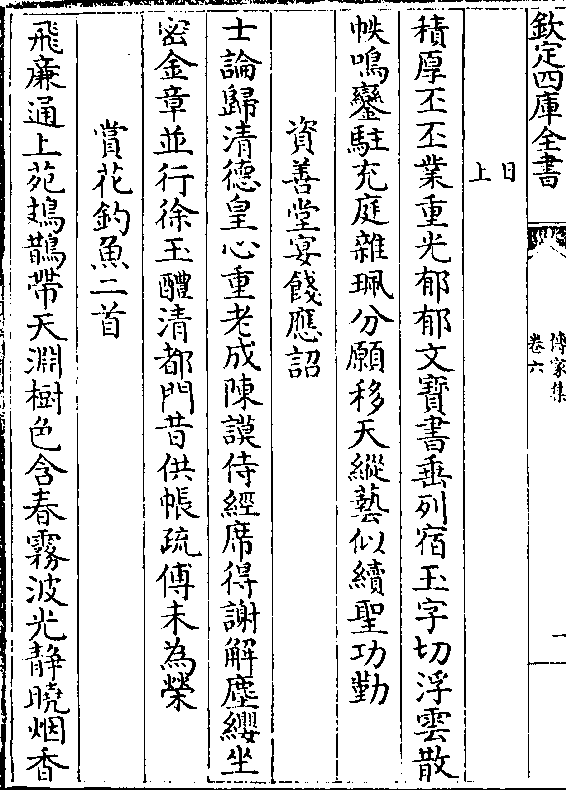 欽定四庫全書
傳家集
卷六
一
日上
積厚丕丕業重光郁郁文寶書垂列宿玉字切浮雲散
帙鳴鑾駐充庭雜珮分願移天縱藝似續聖功勤
資善堂宴餞應詔
士論歸清德皇心重老成陳謨侍經席得謝解塵纓坐
密金章並行徐玉醴清都門昔供帳疏傅未為榮
賞花釣魚二首
飛亷通上苑鳷鵲帶天淵樹色含春霧波光靜曉烟香